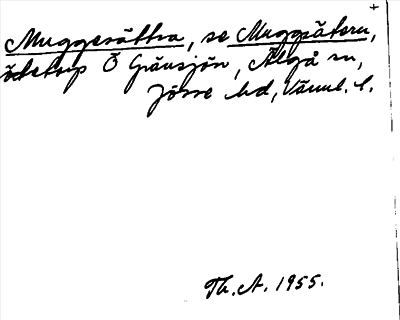 +
Muggesättra, se Muggsätern,
ödetorp Ö Gränsjön, Älgå sn,
Jösse hd, Värml. l.
Th. A. 1955.